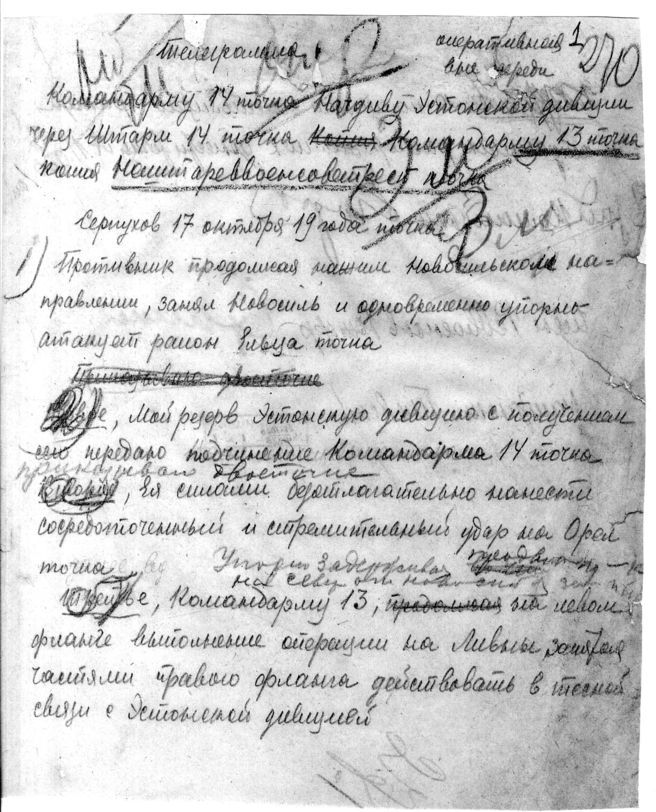 Телеграмма
оперативная 1
вне очереди
270
Командарму 14 точка Начдиву Эстонской дивизии
через Штарм 14 точка Копия Командарму 13 точка
копия Наштареввоенсоветресп точка
Серпухов 17 октября 19 года точка
1) Противник продолжая нажим Новосильском на=
правлении, занял Новосиль и одновременно упорно
атакует район Ельца точка
Приказываю двоеточие
2), Мой резерв Эстонскую дивизию с получением
сего передаю подчинение Командарма 14 точка
приказываю двоеточие
Ея силами безотлагательно нанести
сосредоточенный и стремительный удар на Орел
точка
Упорно задерживая
на север от Новосиля
Третье, Командарму 13, продолжая на левом
фланге выполнение операции на Ливны
частями правого фланга действовать в тесной
связи с Эстонской дивизией